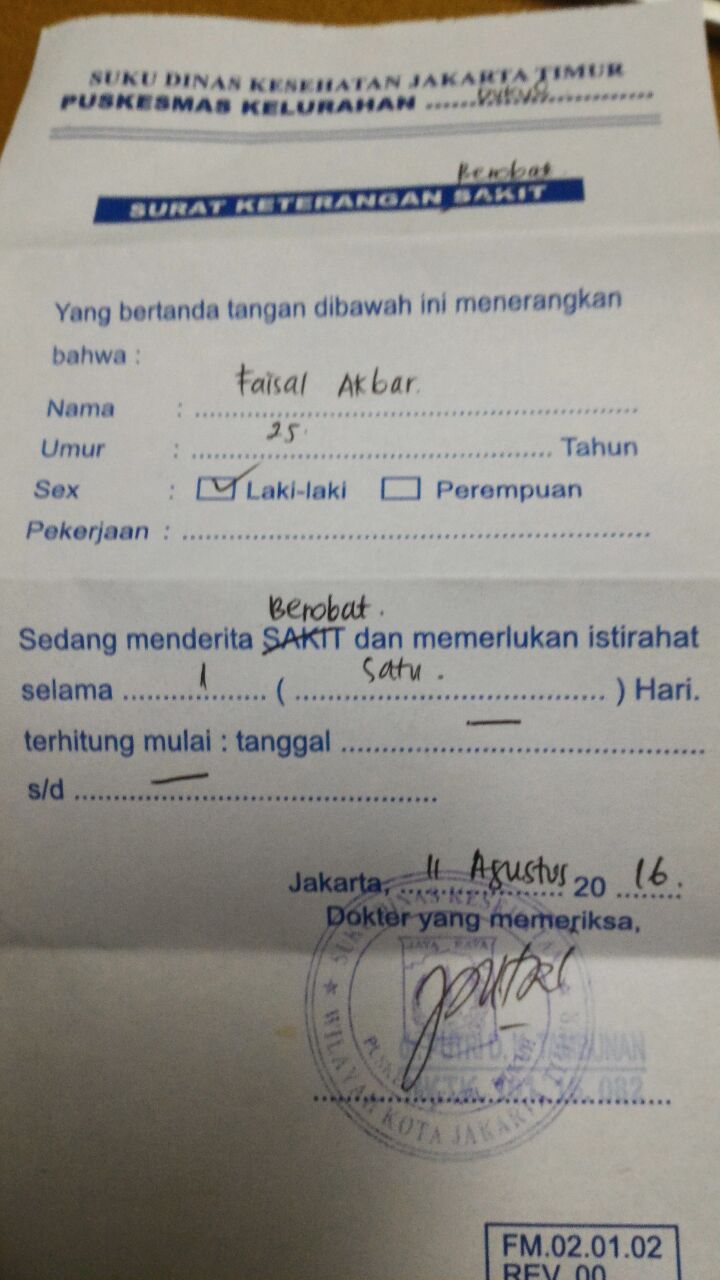 SUKU DINAS KESEHATAN JAKARTA TIMUR
PUSKESMAS KELURAHAN ........ Dukuh ........
Berobat
SURAT KETERANGAN SAKIT
Yang bertanda tangan dibawah ini menerangkan
bahwa :
Nama : Faisal Akbar.
Umur : 25. Tahun
Sex : Laki-laki Perempuan
Pekerjaan : ........
Berobat.
Sedang menderita SAKIT dan memerlukan istirahat
selama 1 ( Satu. ) Hari.
terhitung mulai : tanggal —
s/d —
Jakarta, 11 Agustus 20 16.
Dokter yang memeriksa,
SUKU DINAS KESEHATAN
JAYA RAYA
WILAYAH KOTA JAKARTA TIMUR
FM.02.01.02
REV. 00